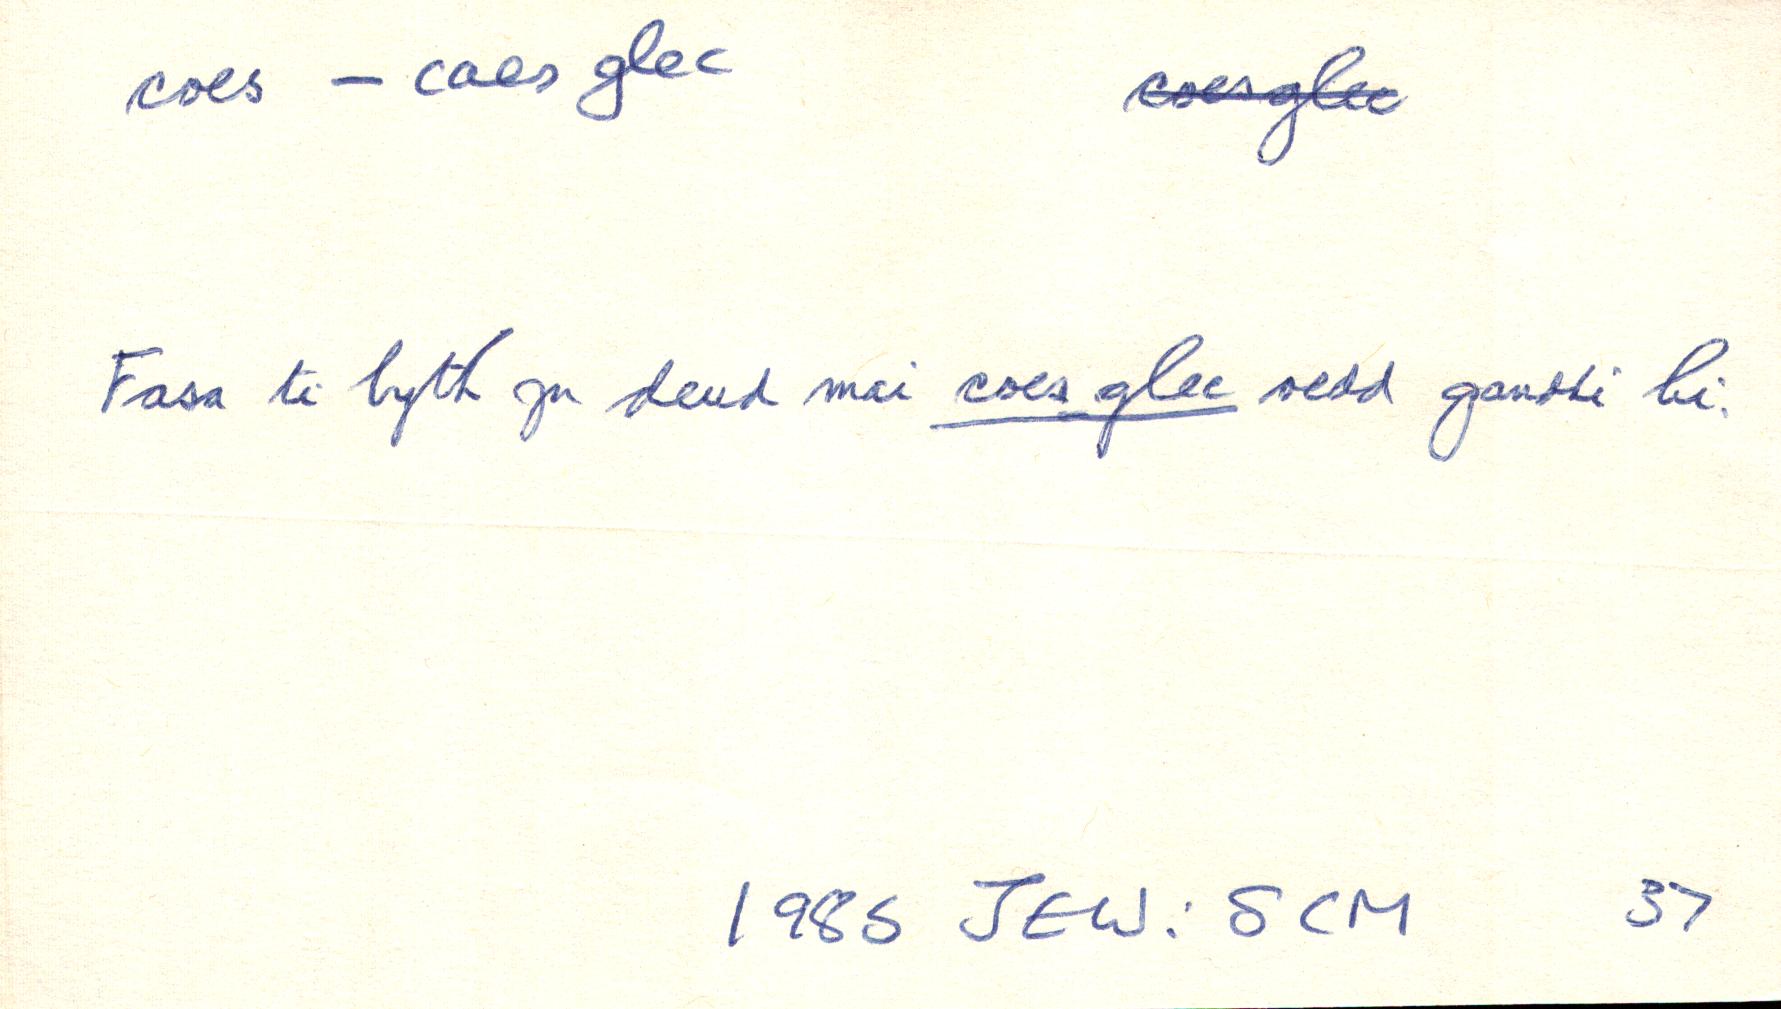 coes – coes glec coesglec
Fasa ti byth yn deud mai coes glec oedd ganddi hi.
1985 JEW: SCM 37